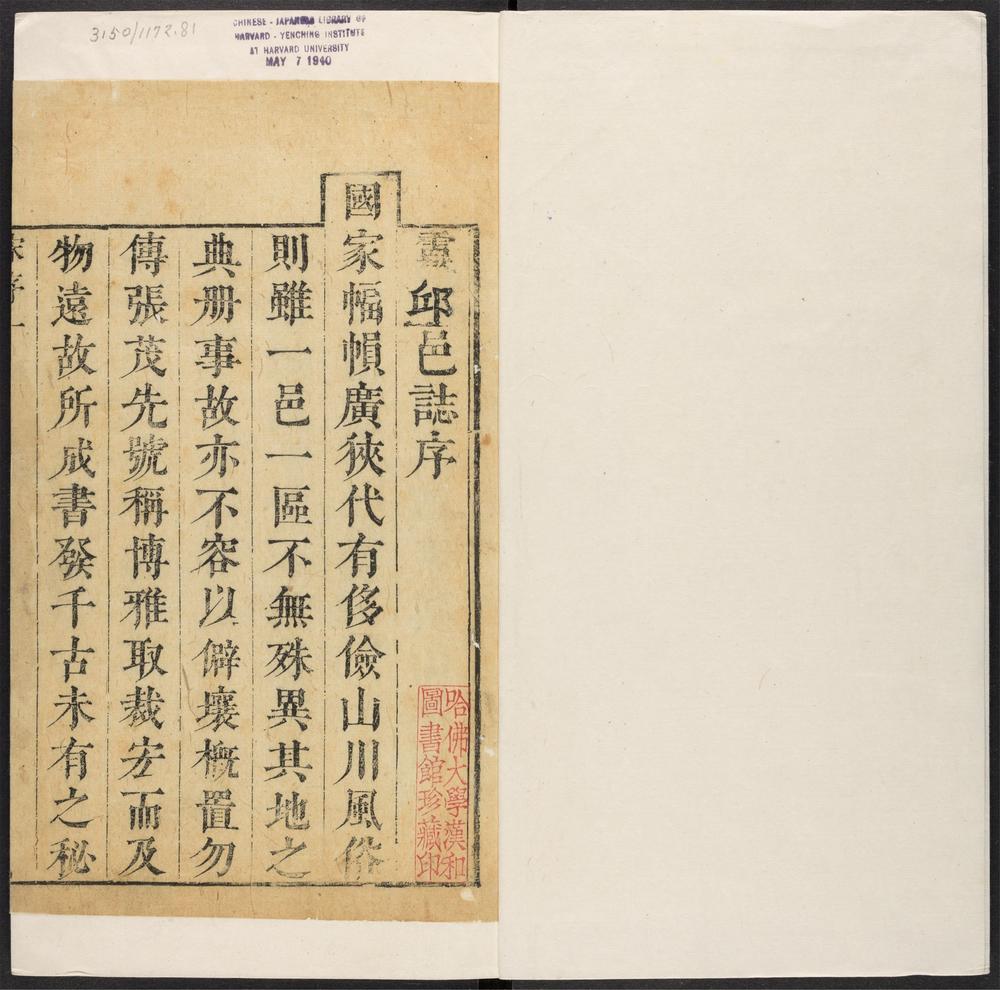 3150/1172.81
CHINESE - JAPANESE LIBRARY OF
HARVARD - YENCHING INSTITUTE
AT HARVARD UNIVERSITY
MAY 7 1940
靈邱邑誌序
國家幅幀廣狹代有侈儉山川風俗
則雖一邑一區不無殊異其地之
典册事故亦不容以僻壤概置勿
傳張茂先號稱博雅取裁宏而及
物遠故所成書發千古未有之秘
序一
哈佛大學漢和
圖書館珍藏印